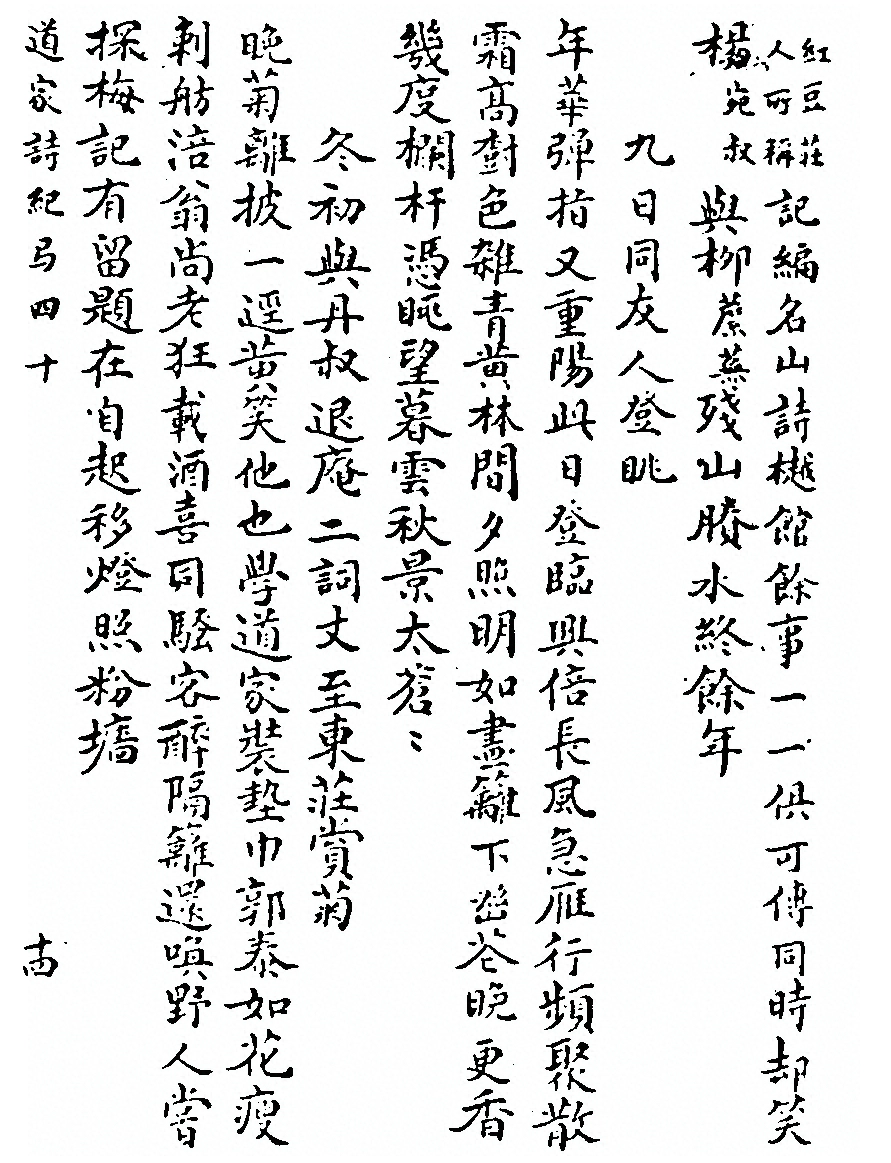 紅豆莊
人所稱
記編名山詩樾館餘事一一俱可傳同時却笑
楊宛叔與柳蘪蕪殘山賸水終餘年
九日同友人登眺
年華彈指又重陽此日登臨興倍長風急雁行頻聚散
霜高樹色雜青黃林間夕照明如畫籬下幽花晚更香
幾度欄杆憑眺望暮雲秋景太蒼〻
冬初與丹叔退庵二詞丈至東莊賞菊
晚菊離披一逕黃笑他也學道家裝墊巾郭泰如花瘦
刺舫涪翁尚老狂載酒喜同騷客醉隔籬還喚野人嘗
探梅記有留題在自起移燈照粉墻
道家詩紀弓四十
十四